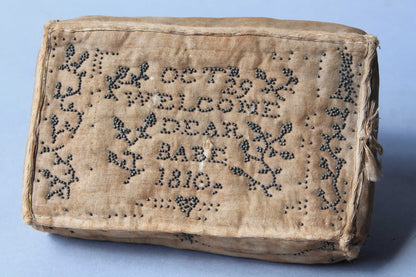 OCT 29
WELCOME
DEAR
BABE
1816